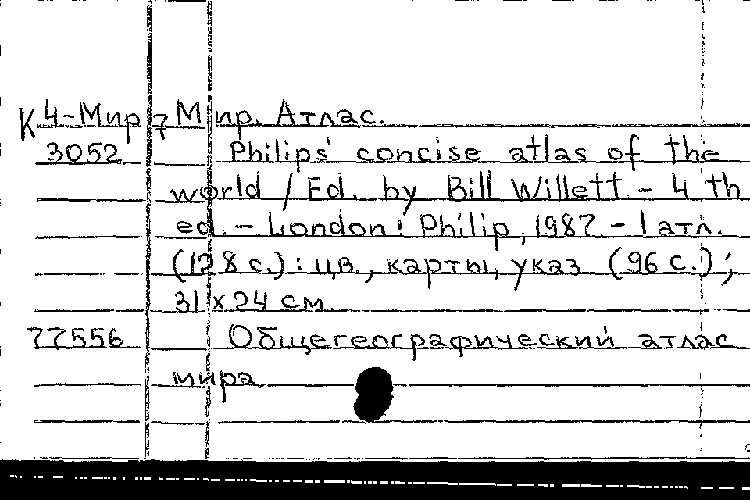 К 4-Мир 7 Мир. Атлас.
3052 Philips' concise atlas of the
world / Ed. by Bill Willett - 4 th
ed. - London: Philip, 1987 - 1 атл.
(128 с.): цв., карты, указ (96 с.);
31 x 24 см
77556 Общегеографический атлас
мира